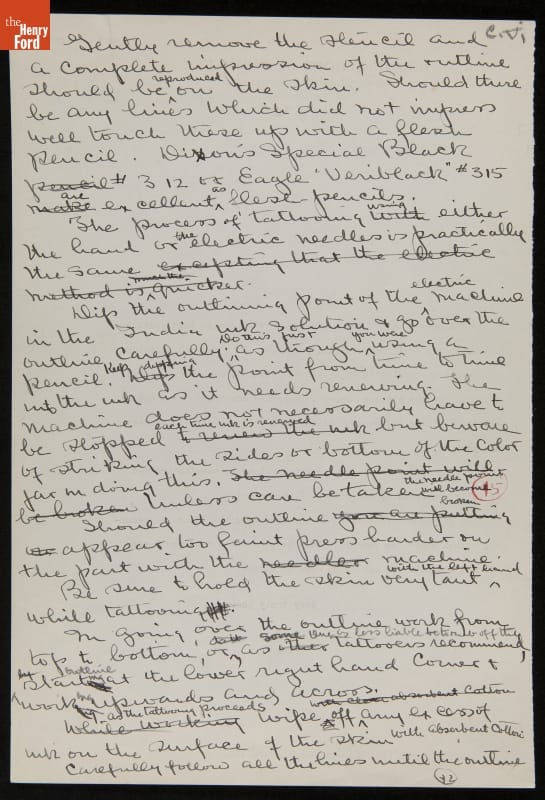 the
Henry
Ford
C.V.
Gently remove the stencil and
a complete impression of the outline
reproduced
should be on the skin. Should there
be any lines which did not impress
well touch these up with a flesh
pencil. Dixon's Special Black
pencil # 312 or Eagle "Veriblack" #315
are as
make excellant flesh pencils.
The process of tattooing with using either
the
the hand or electric needles is practically
the same excepting that the electric
method is quicker.
electric
Dip the outlining point of the machine
in the India ink solution & go over the
Do this just you were
outline carefully, as though using a
Keep dipping
pencil. the point from time to time
into the ink as it needs renewing. The
machine does not necessarily have to
each time ink is renewed
be stopped to renew the ink but beware
of striking the sides or bottom of the color
jar in doing this. The needle point will
the needle point
will become
broken
be broken Unless care be taken
Should the outline you are putting
on appear too faint press harder on
the part with the needles machine.
with the left hand
Be sure to hold the skin very taut
while tattooing
In going over the outline work from
some is less liable to rub off they
top to bottom, or, as other tattooers recommend,
outline
start at the lower right hand corner &
work upwards and across.
as the tattooing proceeds with absorbent cotton
while working wipe off any excess of
ink on the surface of the skin with absorbent cotton
Carefully follow all the lines until the outline
42